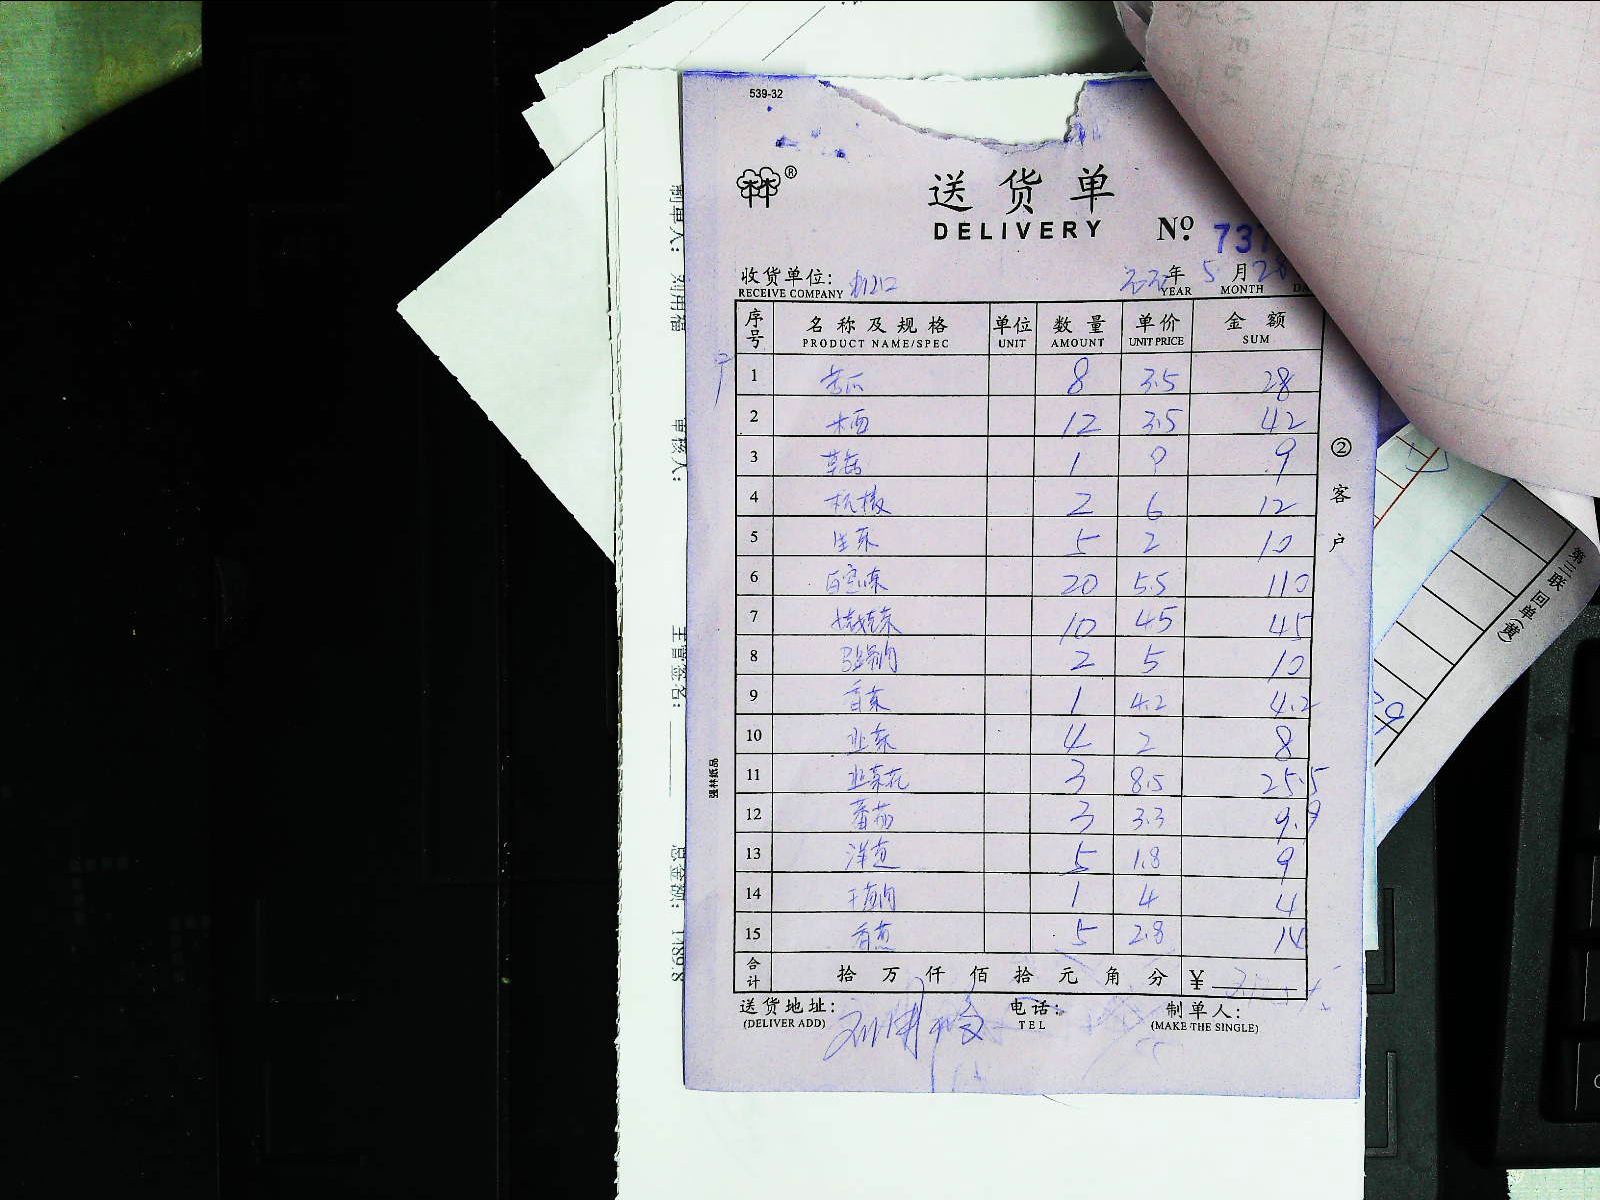 539-32
林®
送货单
DELIVERY
№ 737
收货单位:
RECEIVE COMPANY
年 5 月 28
YEAR MONTH
序号 名称及规格 单位 数量 单价 金额
PRODUCT NAME/SPEC UNIT AMOUNT UNIT PRICE SUM
1 苦瓜 8 3.5 28
2 12 3.5 42
3 1 9 9
4 2 6 12
5 生菜 5 2 10
6 20 5.5 110
7 10 45 45
8 2 5 10
9 香菜 1 4.2 4.2
10 韭菜 4 2 8
11 韭菜花 3 8.5 25.5
12 番茄 3 3.3 9.9
13 洋葱 5 1.8 9
14 1 4 4
15 香葱 5 2.8 14
合计 拾 万 仟 佰 拾 元 角 分 ¥
送货地址: 电话: 制单人:
(DELIVER ADD) TEL (MAKE THE SINGLE)
② 客户
强林纸品
制单人: 刘用福
审核人:
主管签名:
总金额: 1489.8
第三联 回单(黄)